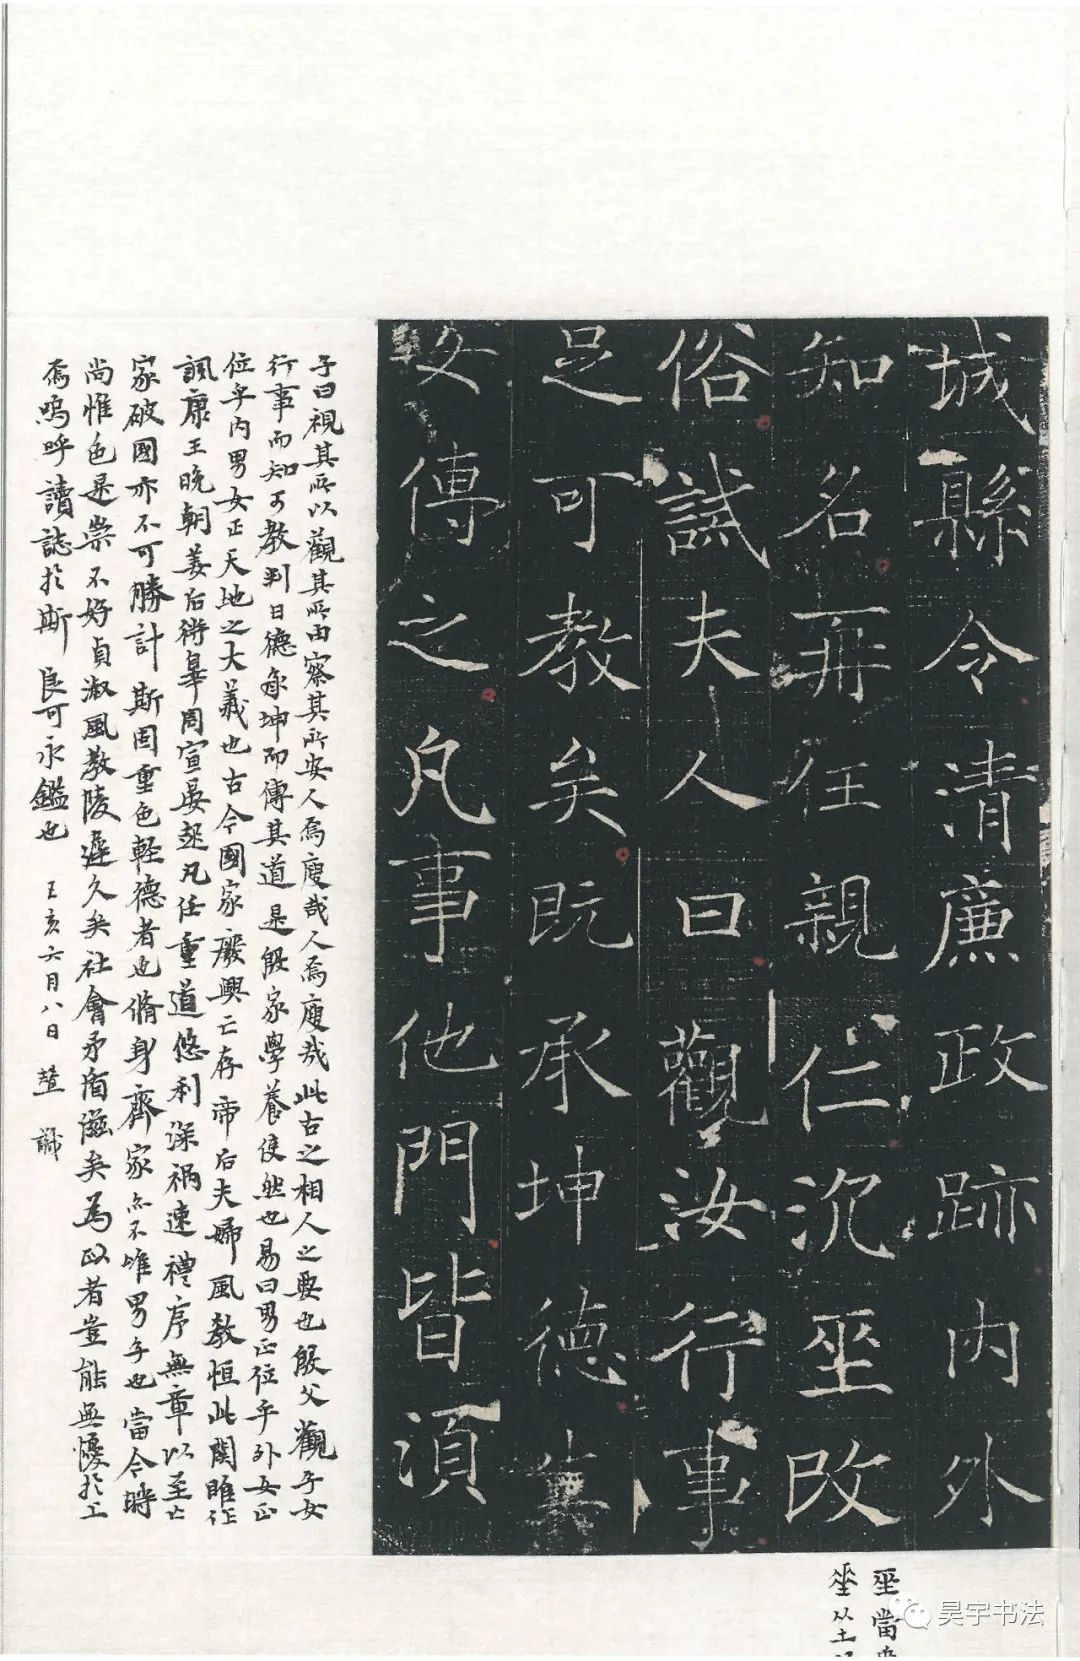 城縣令清廉政跡內外
知名再任親仁沉埊改
俗試夫人曰觀汝行事
足可教矣既承坤德兾
安傳之凡事他門皆須
子曰視其所以觀其所由察其所安人焉廋哉人焉廋哉此古之相人之要也殷父觀子女
行事而知可教判日德承坤而傳其道是殷家學養使然也易曰男正位乎外女正
位乎內男女正天地之大義也古今國家廢興亡存帝后夫婦風教恒此關雎作
諷康王晚朝姜后待辜周宣晏起凡任重道悠利深禍速禮序無章以至亡
家破國亦不可勝計斯固重色輕德者也脩身齊家亦不唯男子也當今時
尚惟色是崇不好貞淑風教陵遲久矣社會矛盾滋矣為政者豈能無懮於工
焉嗚呼讀誌於斯良可永鑑也 王亥六月八日 識
埊當
埊从土
昊宇书法